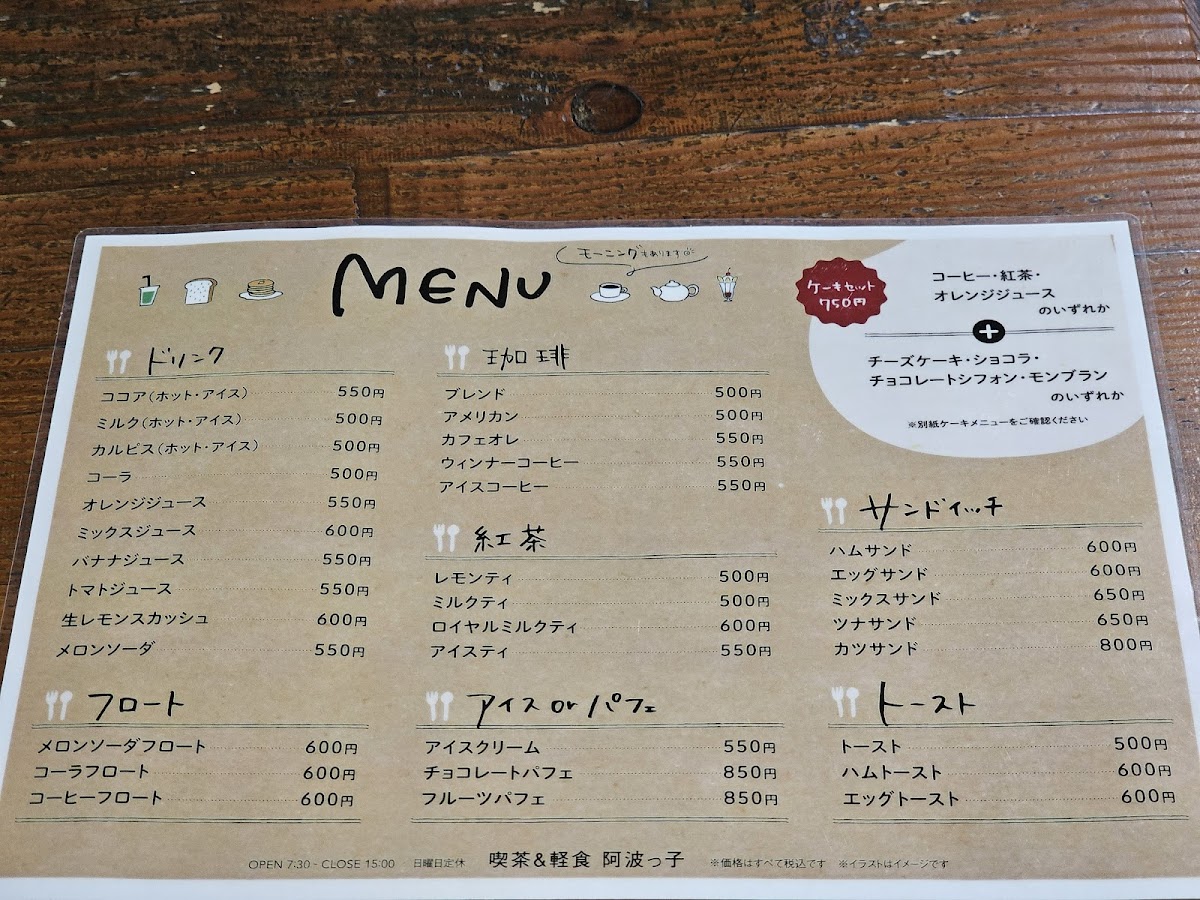 MENU
モーニングもあります
ケーキセット
750円
コーヒー・紅茶・
オレンジジュース
のいずれか
+
チーズケーキ・ショコラ・
チョコレートシフォン・モンブラン
のいずれか
※別紙ケーキメニューをご確認ください
ドリンク
ココア(ホット・アイス) 550円
ミルク(ホット・アイス) 500円
カルピス(ホット・アイス) 500円
コーラ 500円
オレンジジュース 550円
ミックスジュース 600円
バナナジュース 550円
トマトジュース 550円
生レモンスカッシュ 600円
メロンソーダ 550円
フロート
メロンソーダフロート 600円
コーラフロート 600円
コーヒーフロート 600円
珈琲
ブレンド 500円
アメリカン 500円
カフェオレ 550円
ウィンナーコーヒー 550円
アイスコーヒー 550円
紅茶
レモンティ 500円
ミルクティ 500円
ロイヤルミルクティ 600円
アイスティ 550円
アイス or パフェ
アイスクリーム 550円
チョコレートパフェ 850円
フルーツパフェ 850円
サンドイッチ
ハムサンド 600円
エッグサンド 600円
ミックスサンド 650円
ツナサンド 650円
カツサンド 800円
トースト
トースト 500円
ハムトースト 600円
エッグトースト 600円
OPEN 7:30 - CLOSE 15:00 日曜日定休 喫茶&軽食 阿波っ子 ※価格はすべて税込です ※イラストはイメージです